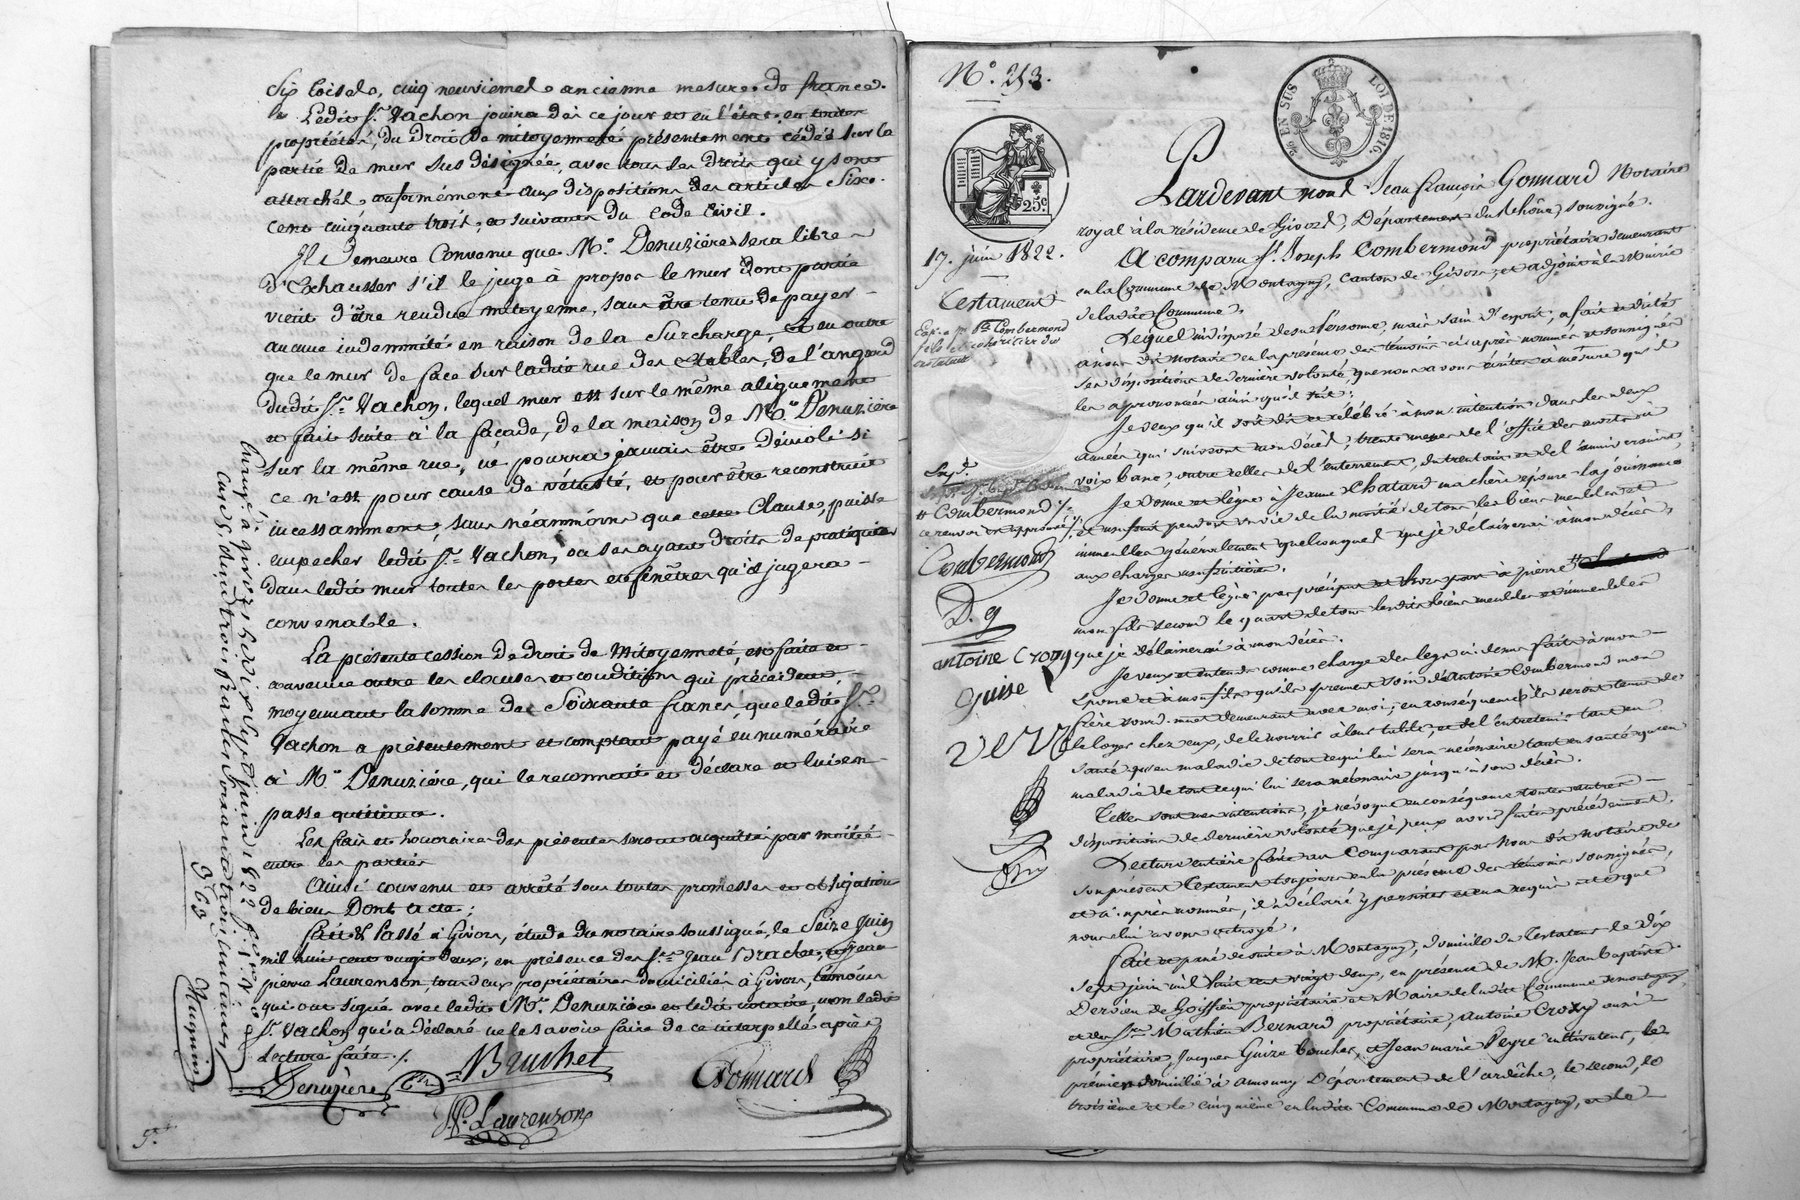 Six toises, cinq neuviemes ancienne mesure de france.
Ledit Sr. Vachon jouira dès ce jour et en l'état, en toute
propriété, du Droit de mitoyenneté présentement cédé sur la
partie de mur sus désignée, avec tous ses droits qui y sont
attachés conformément aux dispositions des articles Six-
cent cinquante trois, et suivants du Code Civil.
Il Demeure Convenu que Mr. Denuzière sera libre
d'Exhausser s'il le juge à propos le mur dont partie
vient d'être rendue mitoyenne, sans être tenu de payer
aucune indemnité en raison de la Surcharge, et en outre
que le mur de face sur ladite rue des Etables, de l'angard
dudit Sr. Vachon, lequel mur est sur le même alignement
et fait suite à la façade, de la maison de Mr. Denuzière
sur la même rue, ne pourra jamais être démoli si
ce n'est pour cause de vétusté, et pour être reconstruit
incessamment, sans néammoins que cette Clause, puisse
empecher ledit Sr. Vachon, ou ses ayant droits de pratiquer
dans ledit mur toutes les portes et fenêtres qu'il jugera
convenable.
La présente cession de droit de Mitoyenneté, est faite et
convenue outre les clauses et conditions qui précèdent,
moyennant la somme de Soixante francs, que ledit Sr.
Vachon a présentement et comptant payé en numéraire
à Mr. Denuzière, qui le reconnait et déclare et lui en
passe quittance.
Les frais et honoraires des présentes seront acquittés par moitié
entre les parties
Ainsi convenu et arrêté sous toutes promesses et obligation
de biens Dont acte;
fait & Passé à Givors, étude du notaire soussigné, le Seize Juin
mil huit cent vingt deux; en présence des Srs. Jean Brachet, et Jean
pierre Laurenson, tous deux propriétaires domiciliés à Givors, témoins
qui ont signé avec ledit Mr. Denuzière et ledit notaire, non ledit
Sr. Vachon qui a déclaré ne le savoir faire de ce interpellé après
Lecture faite ./.
Denuzière
Bruchet
Gonnard
JP. Laurenson
Enregé. à givors le dix Sept juin 1822
deux francs
vingt trois centimes
Mugnier
No. 253.
25c
96 EN SUS
LOI DE 1816.
17. juin 1822.
Testament
Exp. a p. Pre. Combermond
fils et cohéritier du
testateur
Pardevant nous Jean françois Gonnard Notaire
royal à la résidence de Givors, Département du Rhône, soussigné.
A comparu Sr. Joseph Combermond propriétaire demeurant
en la Commune de Montagny, canton de Givors, et adjoint à la Mairie
de ladite Commune;
Lequel indisposé de sa Personne, mais sain d'esprit, a fait et dicté
à nous dit notaire en la présence des témoins ci après nommés et soussignés
ses dispositions de dernière volonté, que nous avons écrites à mesure qu'il
les a prononcées ainsi qu'il suit:
Je veux qu'il soit dit et célébré à mon intention dans les deux
années qui suivront mon décès, trente messes de l'office des morts à
voix basse, outre celles de l'enterrement, du trentain et de l'anniversaire
Je donne et lègue à Jeanne Chatard ma chère épouse la jouissance
et usufruit pendant sa vie de la moitié de tous les biens meubles et
immeubles généralement quelconques que je délaisserai à mon décès,
aux charges usufruitières.
Je donne et lègue par préciput et hors part à pierre #
mon fils second le quart de tous lesdits biens meubles et immeubles
que je délaisserai à mon décès.
Je veux et entends comme charge des legs ci dessus faits à mon
épouse et à mon fils qu'ils prennent soin d'Antoine Combermond mon
frère sourd-muet demeurant avec moi; en conséquence ils seront tenus de
le loger chez eux, de le nourrir à leur table, et de l'entretenir tant en
santé qu'en maladie de tout ce qui lui sera nécessaire tant en santé qu'en
maladie de tout ce qui lui sera nécessaire jusqu'à son décès.
Telles sont mes intentions, je révoque en conséquence toutes autres
dispositions de dernière volonté que je peux avoir faites précédemment.
Lecture entière faite au Comparant par Nous dit notaire de
son présent Testament toujours en la présence des témoins soussignés,
et ci-après nommés, il a déclaré y persister et en a requis acte que
nous lui avons octroyé.
fait et passé de suite à Montagny, domicile du Testateur le Dix
Sept juin mil huit cent vingt deux, en présence de M. Jean Baptiste
Dervieu de Goiffieu propriétaire et Maire de ladite Commune de Montagny,
et des Srs. Mathieu Bernard propriétaire, Antoine Crozy aussi
propriétaire, Jacques Guize boucher, et Jean marie Peyre cultivateur, le
premier domicilié à Amonay Département de l'ardèche, le second, le
troisième et le cinquième en ladite Commune de Montagny, et le
# Combermond ./.
ce renvoi est approuvé ./.
Combermond
D. g
antoine Crozy
Guise